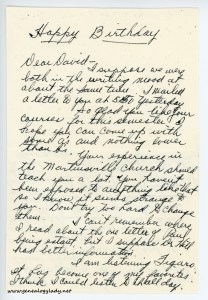 Happy Birthday
Dear David -
I suppose we were
both in the writing mood at
about the same time. I mailed
a letter to you at 5:00 yesterday
So glad you like your
courses for this semester. I
hope you can come up with
A's and nothing lower
than
Your experience in
the church should
teach you a lot. You haven't
been exposed to anything like that
so I know it seems strange to
you. Don't try too hard to change
them.
I can't remember where
I read about the one letter of Paul
being extant, but I suppose Dr.
had better information.
I am listening
It has become one of my favorites
think I could listen to it all day.
© www.genealogylady.net